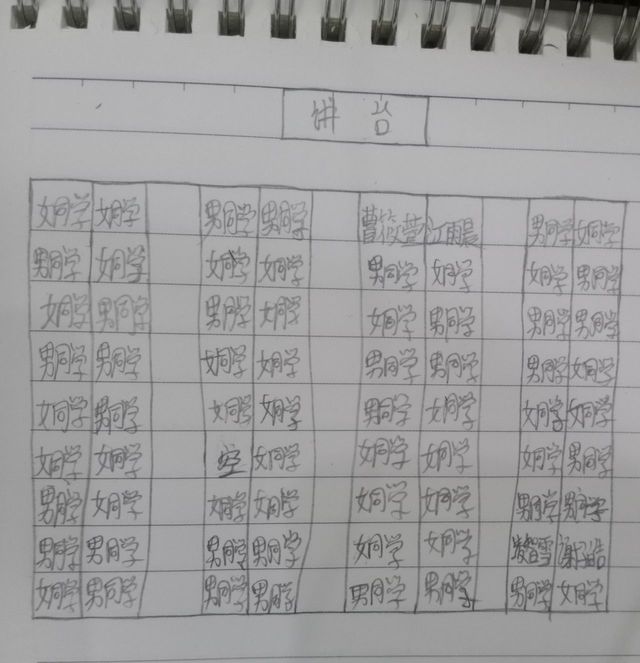 讲 台
女同学 女同学 男同学 男同学 曹筱萱 江雨晨 男同学 女同学
男同学 女同学 女同学 女同学 男同学 女同学 女同学 男同学
女同学 男同学 男同学 女同学 女同学 男同学 男同学 男同学
男同学 男同学 女同学 女同学 男同学 男同学 男同学 女同学
女同学 男同学 女同学 女同学 男同学 女同学 女同学 女同学
女同学 女同学 空 女同学 女同学 女同学 女同学 男同学
男同学 女同学 女同学 女同学 女同学 女同学 男同学 男同学
男同学 男同学 男同学 男同学 女同学 女同学
女同学 男同学 男同学 男同学 男同学 男同学 男同学 女同学